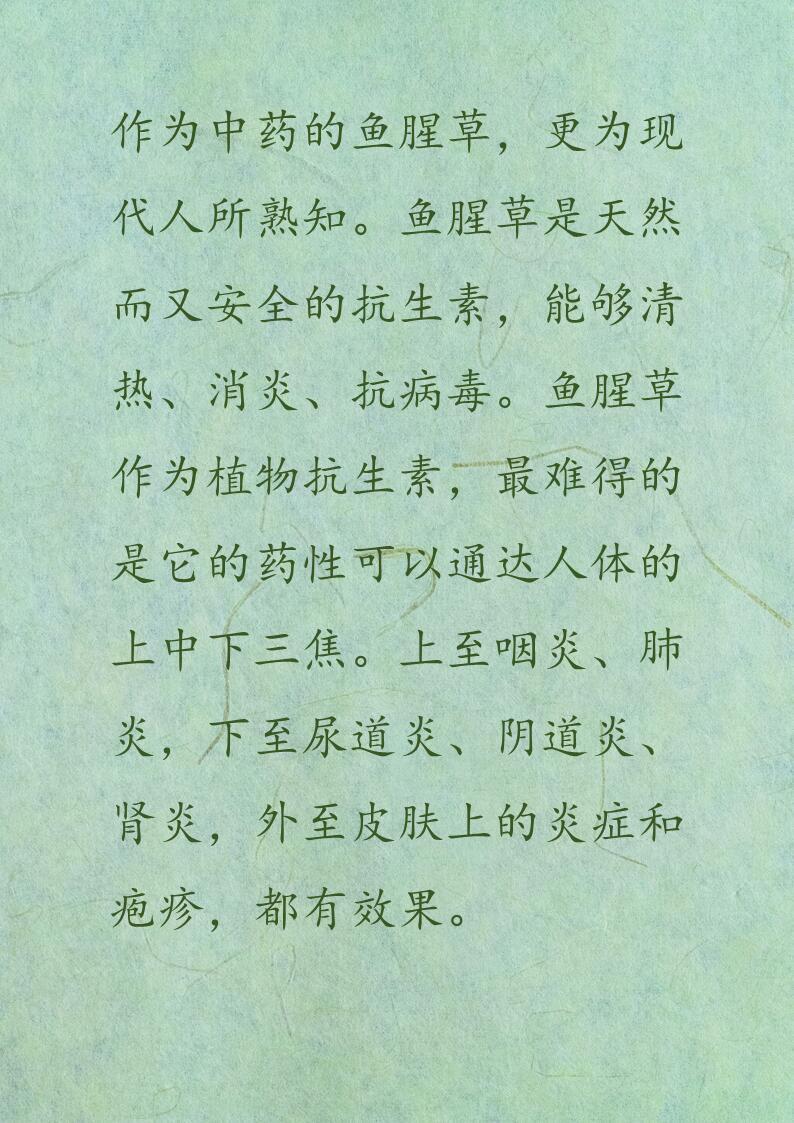 作为中药的鱼腥草，更为现
代人所熟知。鱼腥草是天然
而又安全的抗生素，能够清
热、消炎、抗病毒。鱼腥草
作为植物抗生素，最难得的
是它的药性可以通达人体的
上中下三焦。上至咽炎、肺
炎，下至尿道炎、阴道炎、
肾炎，外至皮肤上的炎症和
疱疹，都有效果。